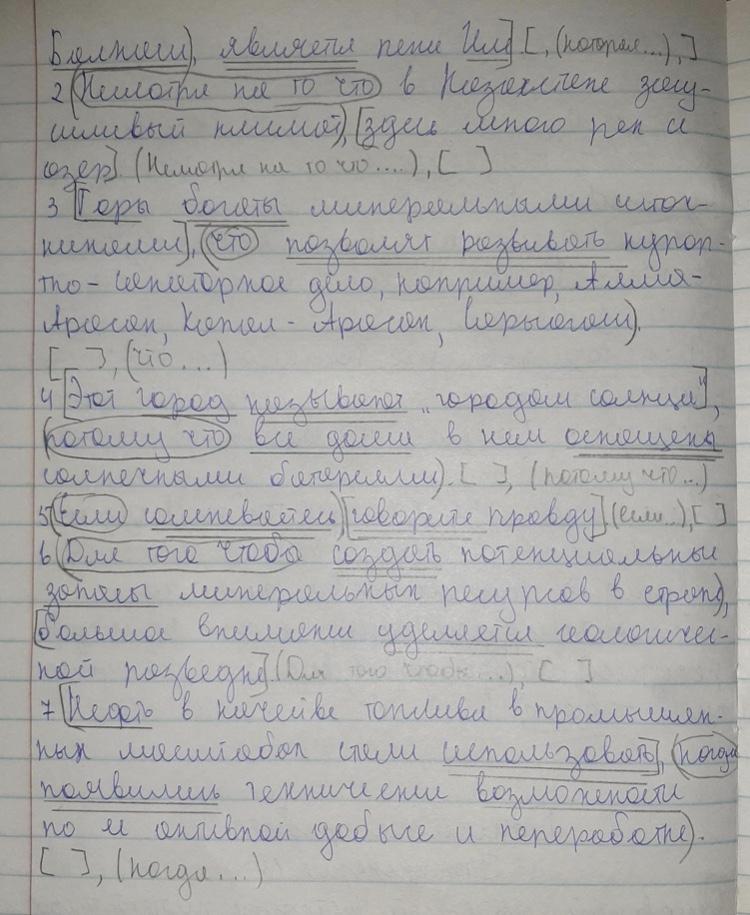 Балхаш), является река Или] [ , (которая...), ]
2 (Несмотря на то что в Казахстане засу-
шливый климат), [здесь много рек и
озер]. (Несмотря на то что....), [ ]
3 [Горы богаты минеральными источ-
никами], (что позволят развивать курор-
тно-санаторное дело, например, Алма-
Арасан, Капал-Арасан, Сарыагаш).
[ ], (что...)
4 [Этот город называют „городом солнца"],
(потому что все дома в нем оснощены
солнечными батареями). [ ], (потому что...)
5 (Если сомневаетесь) [говорите правду] (если..), [ ]
6 (Для того чтобы создать потенциальные
запасы минеральных ресурсов в стране),
[большое внимание уделяется геологичес-
кой разведке] (Для того чтобы...), [ ]
7 [Нефть в качестве топлива в промышлен-
ных масштабах стали использовать], (когда
появились технические возможности
по и активной добыче и переработке).
[ ], (когда...)